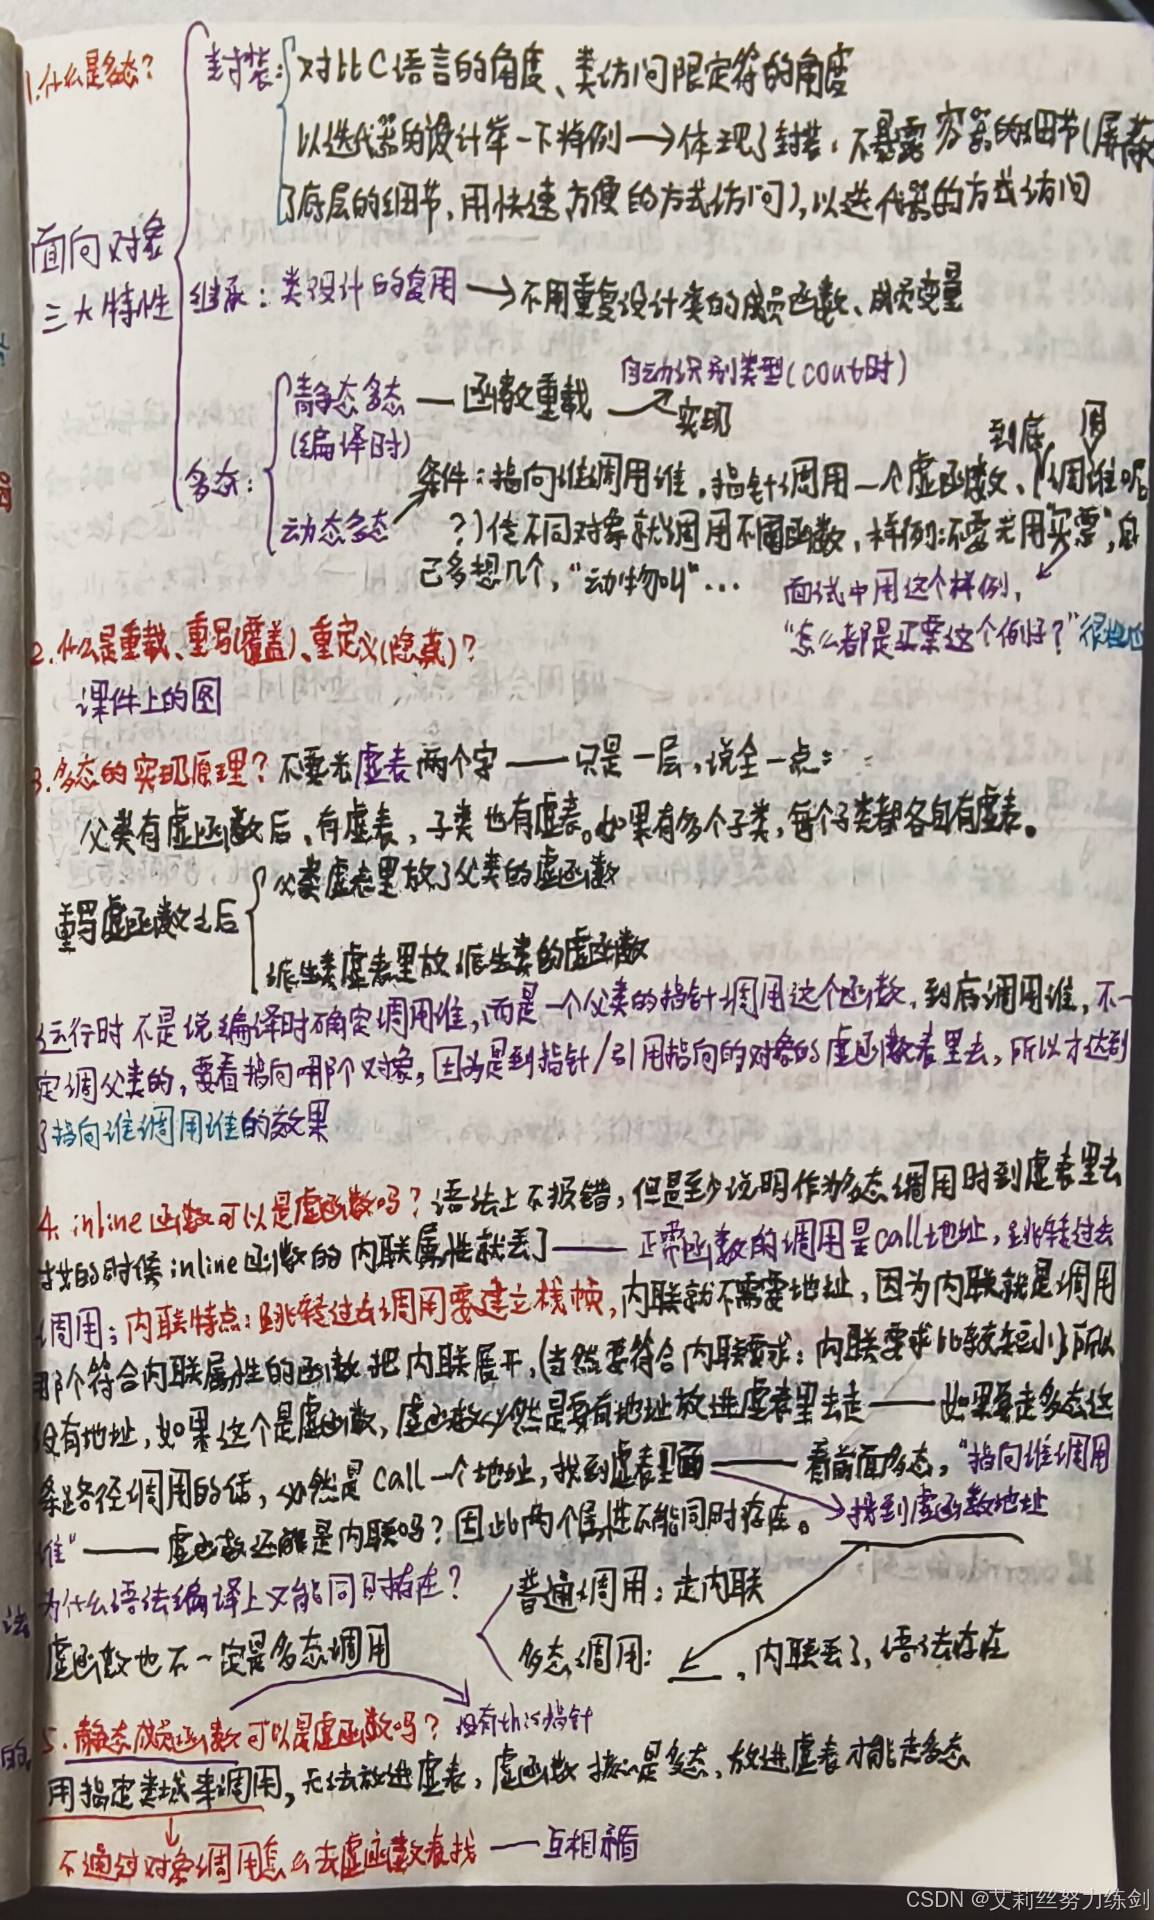 1.什么是多态?
面向对象
三大特性
封装:对比C语言的角度、类访问限定符的角度
以迭代器的设计举一下样例→体现了封装:不暴露容器的细节(屏蔽
了底层的细节,用快速、方便的方式访问),以迭代器的方式访问
继承:类设计的复用→不用重复设计类的成员函数、成员变量
多态:
静态多态—函数重载→实现
(编译时)
自动识别类型(cout时)
动态多态
条件:指向谁调用谁,指针调用一个虚函数、(到底调用谁呢
?)传不同对象就调用不同函数,样例:不要光用"买票",自
己多想几个,"动物叫"…
面试中用这个样例,
"怎么都是买票这个例子?"
2.什么是重载、重写(覆盖)、重定义(隐藏)?
课件上的图
3.多态的实现原理?不要光虚表两个字——只是一层,说全一点:
父类有虚函数后,有虚表,子类也有虚表。如果有多个子类,每个子类都各自有虚表。
重写虚函数之后
父类虚表里放了父类的虚函数
派生类虚表里放派生类的虚函数
运行时不是说编译时确定调用谁,而是一个父类的指针调用这个函数,到底调用谁,不一
定调父类的,要看指向哪个对象,因为是到指针/引用指向的对象的虚函数表里去,所以才达到
了指向谁调用谁的效果
4.inline函数可以是虚函数吗?语法上不报错,但是至少说明作为多态调用时到虚表里去
找的时候inline函数的内联属性就丢了——正常函数的调用是call地址,跳转过去
调用;内联特点:跳转过去调用要建立栈帧,内联就不需要地址,因为内联就是调用
那个符合内联属性的函数把内联展开,(当然要符合内联要求:内联要求比较短小)所以
没有地址,如果这个是虚函数,虚函数必然是要有地址放进虚表里去走——如果要走多态这
条路径调用的话,必然是call一个地址,找到虚表里面——看前面多态,"指向谁调用
谁"——虚函数还能是内联吗?因此两个属性不能同时存在。
找到虚函数地址
为什么语法编译上又能同时存在?
虚函数也不一定是多态调用
普通调用:走内联
多态调用:___,内联丢了,语法存在
5.静态成员函数可以是虚函数吗?没有this指针
用指定类域来调用,无法放进虚表,虚函数核心是多态,放进虚表才能走多态
不通过对象调用怎么去虚函数表找——互相矛盾
CSDN @艾莉丝努力练剑